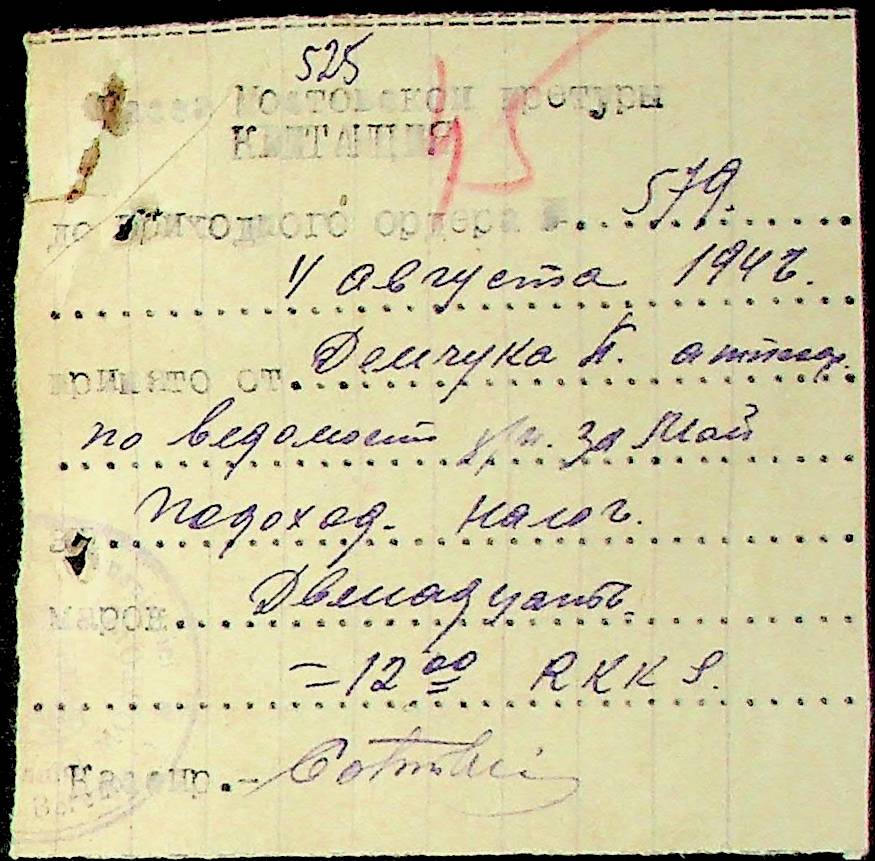 525
Касса Мостовской претуры
КВИТАЦИЯ
15
до приходного ордера №. 579.
11 августа 194
принято от Демчука П.
по ведомости за Май
за Подоход. налог.
марок Двенадцать
=12 00 RKKS.
Кассир.-